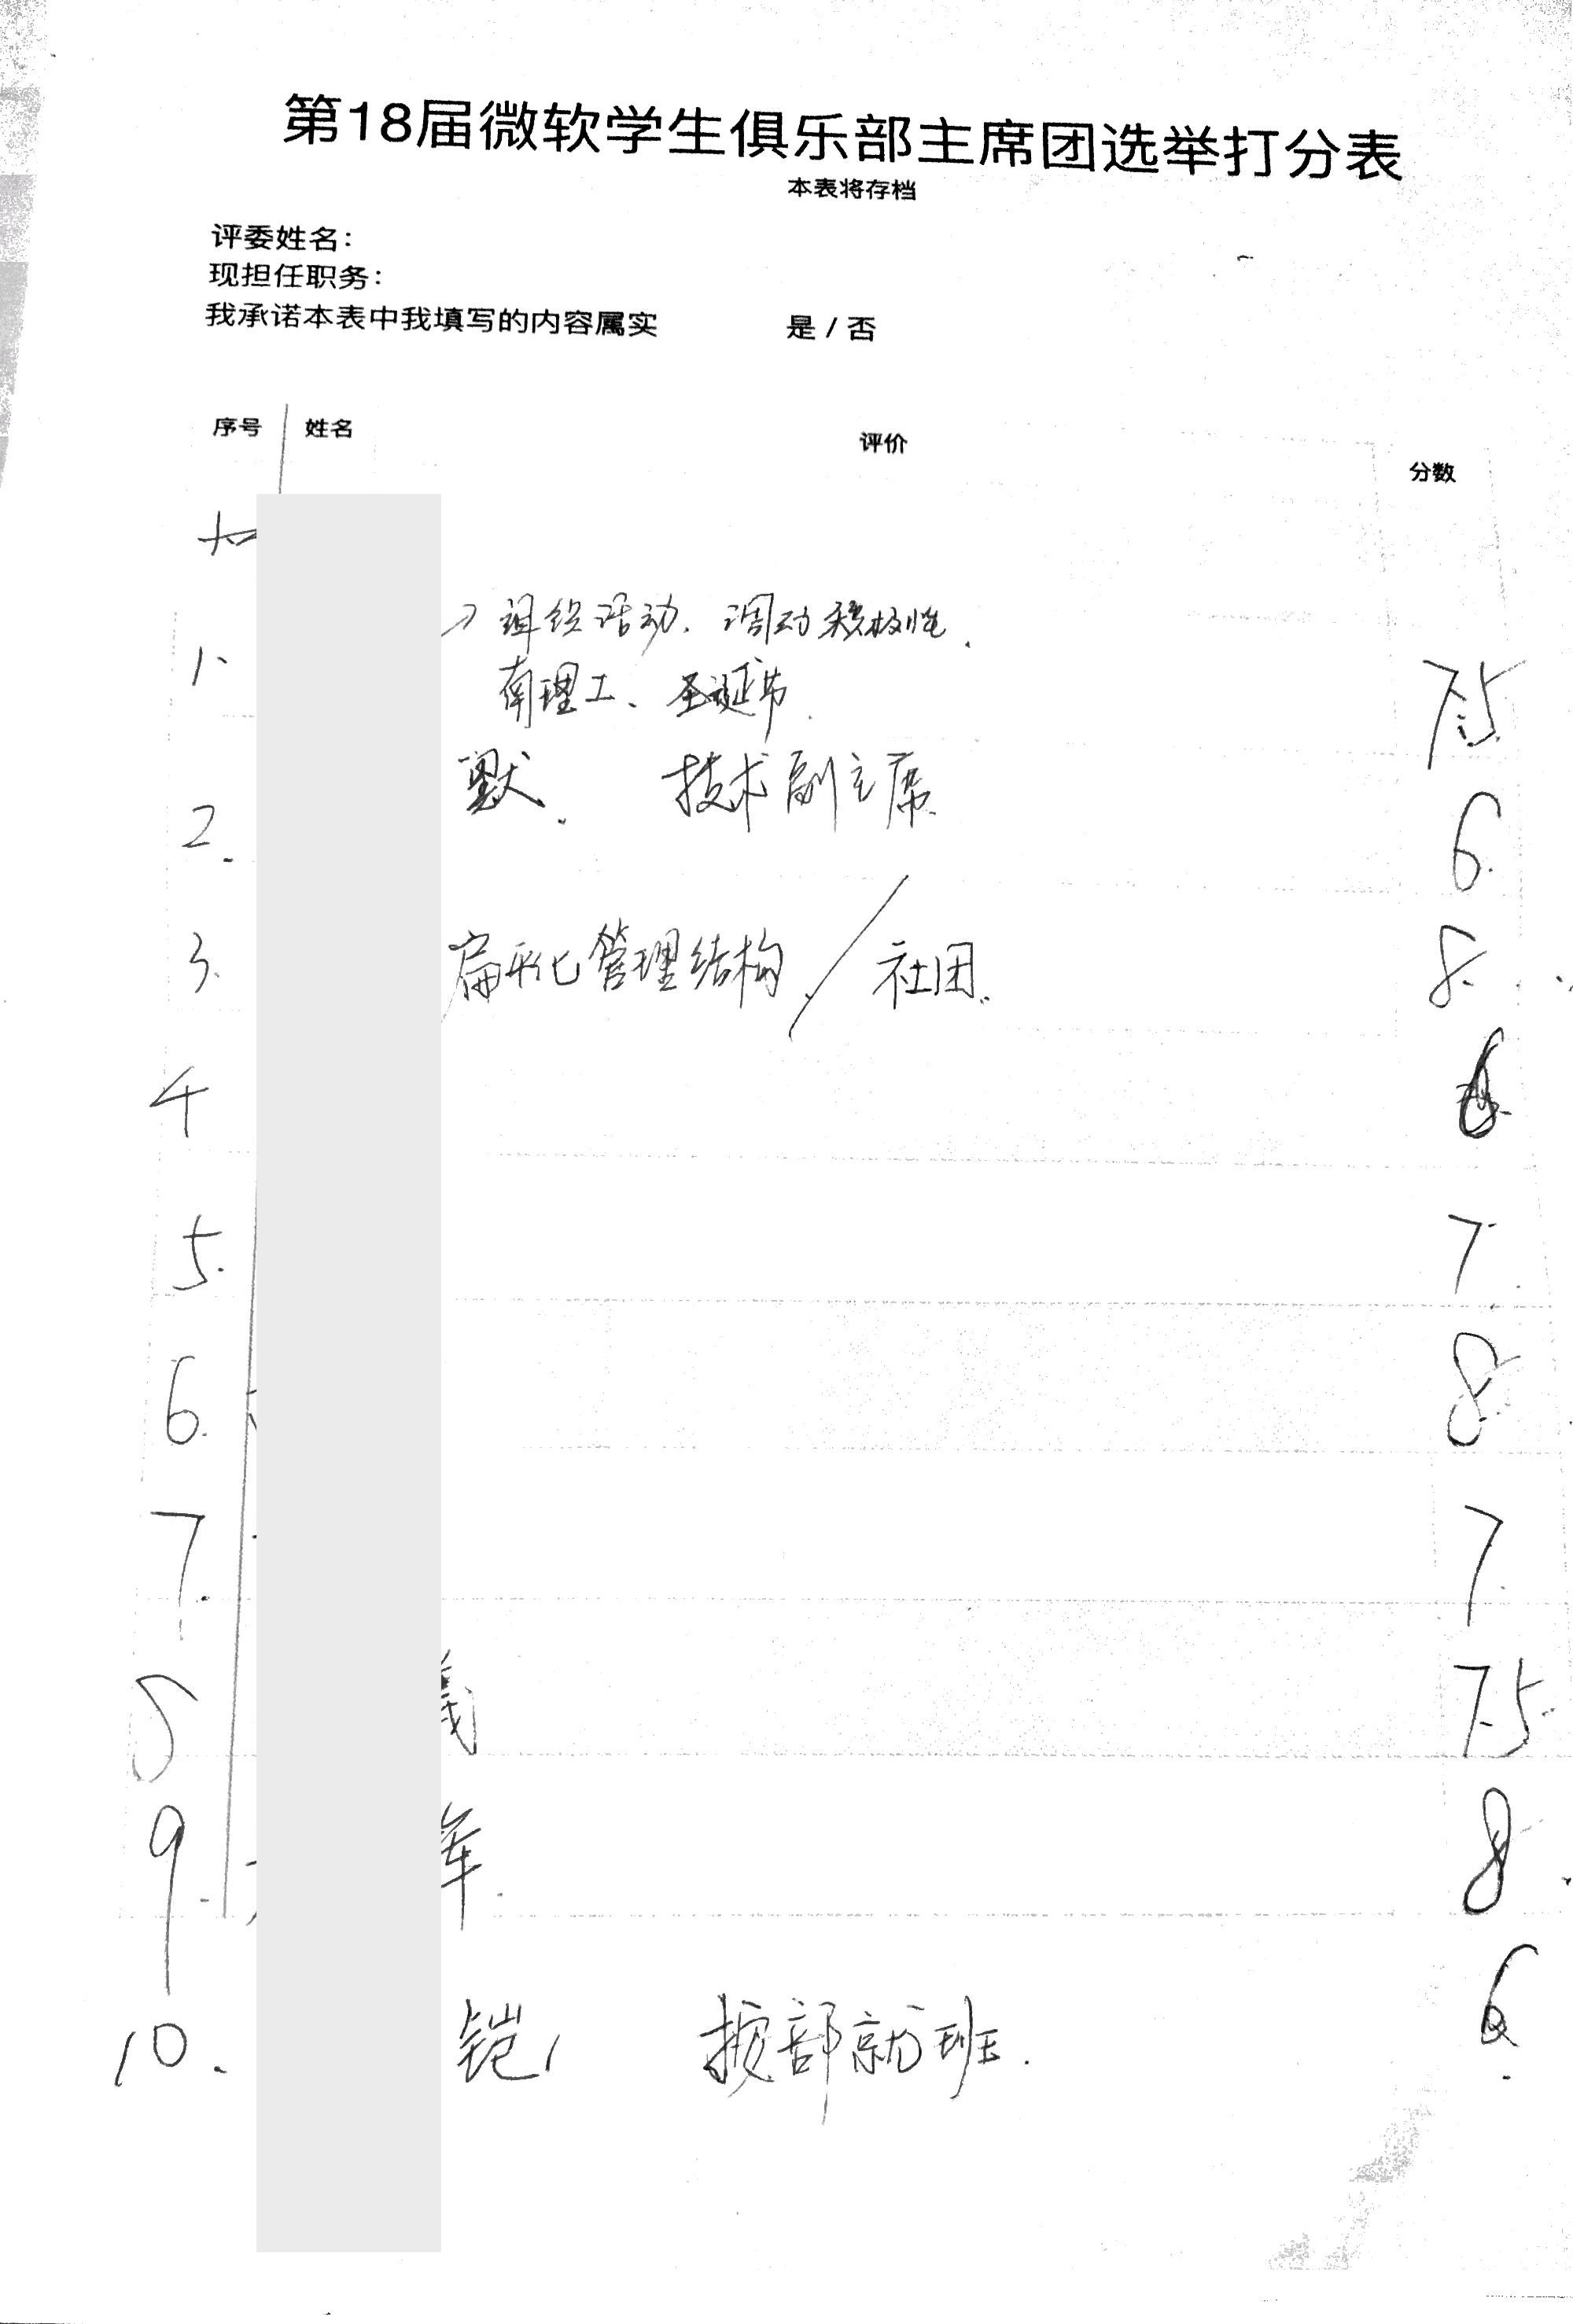 第18届微软学生俱乐部主席团选举打分表
本表将存档
评委姓名：
现担任职务：
我承诺本表中我填写的内容属实 是 / 否
序号 姓名 评价 分数
组织活动、调动积极性.
1. 南理工、圣诞节. 7.5
2. 默. 技术副主席. 6.
3. 扁平化管理结构 / 社团. 8.
4 6
5. 7.
6. 8.
7. 7.
8 義 7.5
9. 军. 8
10. 铠, 按部就班. 6.